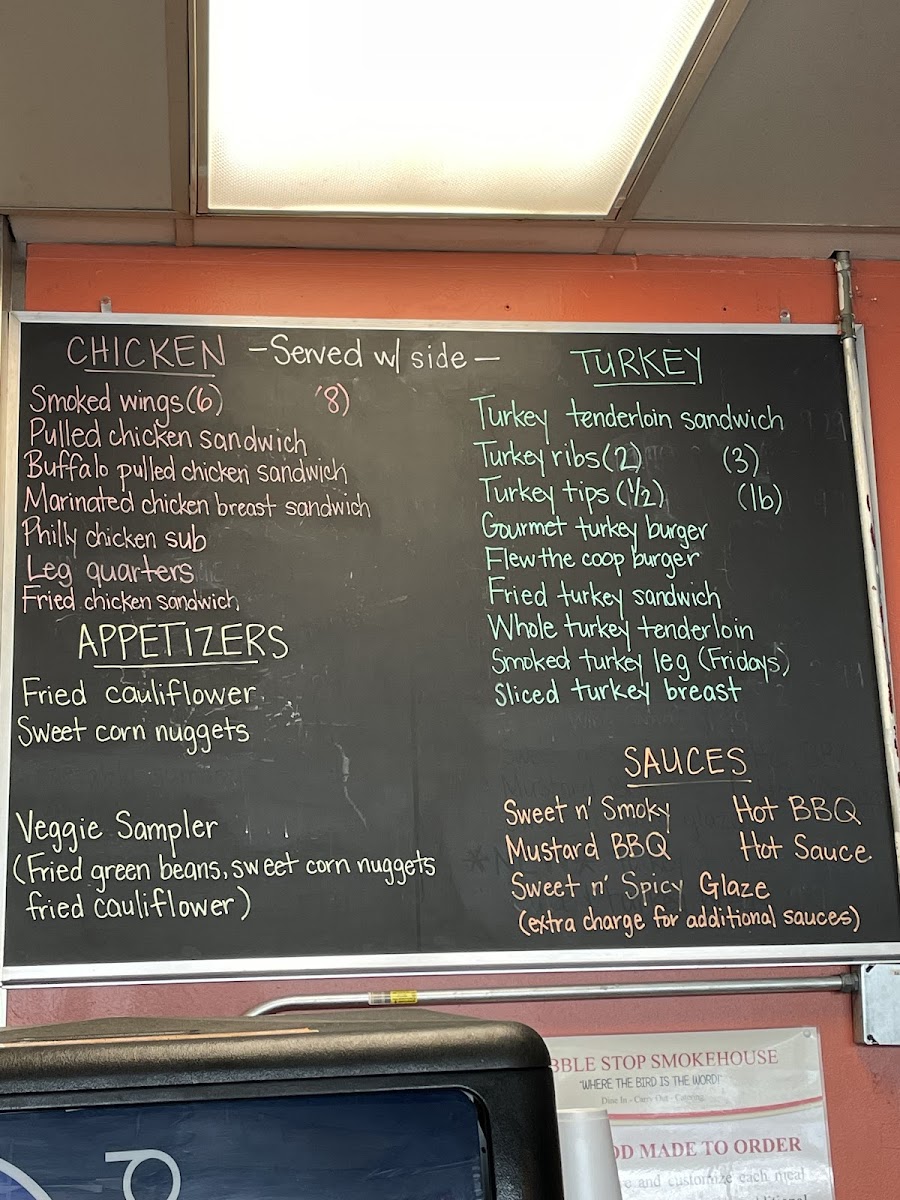 CHICKEN
-Served w/ side-
Smoked wings (6) 8)
Pulled chicken sandwich
Buffalo pulled chicken sandwich
Marinated chicken breast sandwich
Philly chicken sub
Leg quarters
Fried chicken sandwich
APPETIZERS
Fried cauliflower
Sweet corn nuggets
Veggie Sampler
(Fried green beans, sweet corn nuggets
fried cauliflower)
TURKEY
Turkey tenderloin sandwich
Turkey ribs (2) (3)
Turkey tips (1/2) (lb)
Gourmet turkey burger
Flew the coop burger
Fried turkey sandwich
Whole turkey tenderloin
Smoked turkey leg (Fridays)
Sliced turkey breast
SAUCES
Sweet n' Smoky Hot BBQ
Mustard BBQ Hot Sauce
Sweet n' Spicy Glaze
(extra charge for additional sauces)
BBLE STOP SMOKEHOUSE
"WHERE THE BIRD IS THE WORD!"
Dine In - Carry Out - Catering
OD MADE TO ORDER
and customize each meal